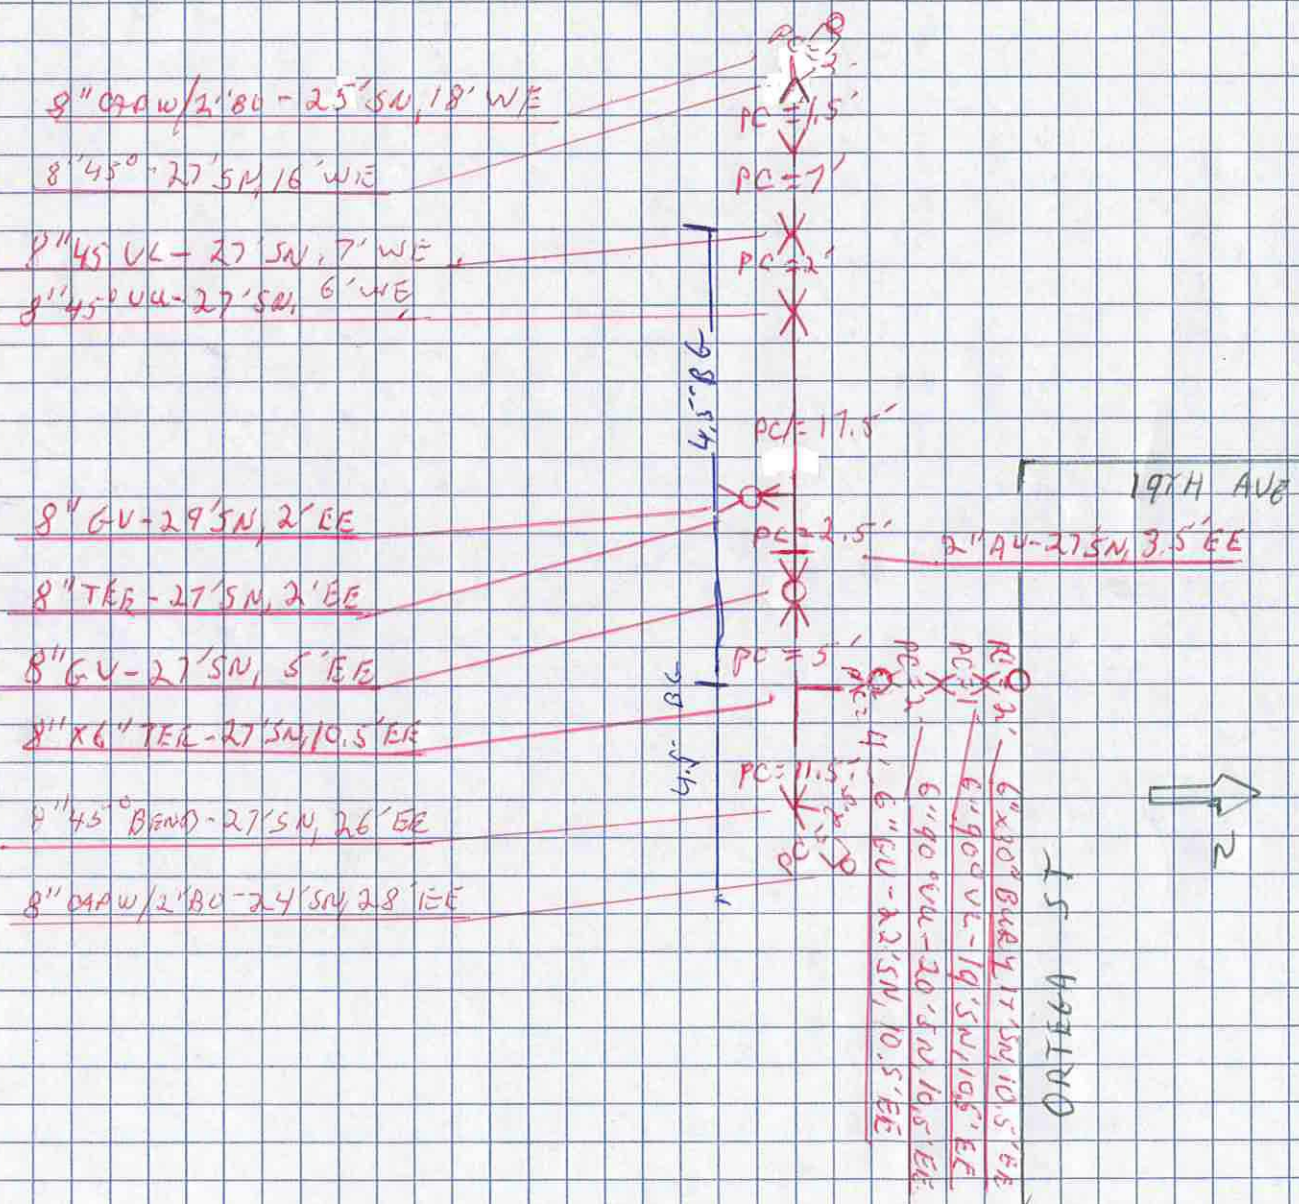 8" CAP W/2" BO - 25' SN, 18' WE
8" 45° - 27' SN, 16' WE
8" 45 VL - 27' SN, 7' WE
8" 45° VU - 27' SN, 6' WE
8" GV - 29' SN, 2' EE
8" TEE - 27' SN, 2' EE
8" GV - 27' SN, 5' EE
8" X6" TEE - 27' SN, 10.5' EE
8" 45° BEND - 27' SN, 26' EE
8" CAP W/2" BO - 24' SN, 28' EE
PC = 1.5'
PC = 7'
PC = 2'
PC = 17.5'
PC = 2.5'
PC = 5'
PC = 11.5'
4.5' BG
4.5' BG
19TH AVE
2" AV - 27' SN, 3.5' EE
PC = 4'
PC = 2'
PC = 1'
PC = 2'
6" GV - 22' SN, 10.5' EE
6" 90° VU - 20' SN, 10.5' EE
6" 90° VL - 19' SN, 10.5' EE
6" x 30" BURY 17' SN, 10.5' EE
ORTEGA ST
N